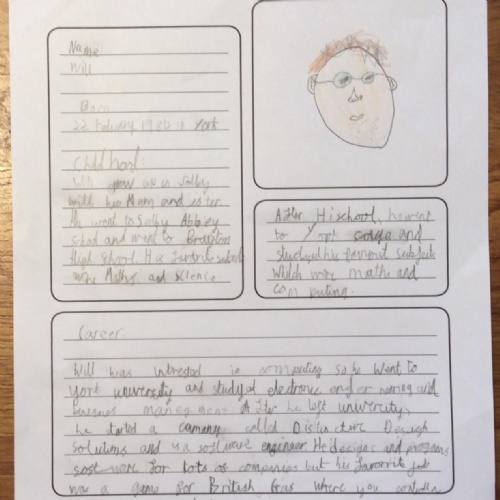 Name:
Will
Born
22 Febuary 19 in York
Childhood:
Will grew up in Selby
with his Mam and sister
He went to Selby Abbey
school and went to Brayton
High School. His favorite subjects
were Maths and Science
After Hi school, he went
to York colga and
studyed his favourit subjects
Which were maths and
computing.
Career.
Will was intrested in computing so he went to
York university and studyed electronic and
business management After he left university,
he started a camany called Distinctive Design
Solutions and is a software engineer He designs and programs
software for lots of companies but his favorite job
was a game for British Gas where you